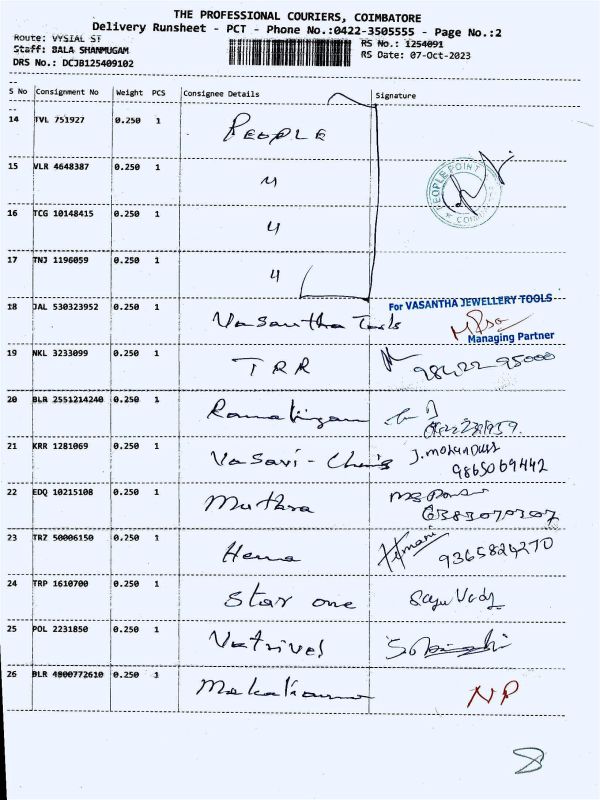 THE PROFESSIONAL COURIERS, COIMBATORE
Delivery Runsheet - PCT - Phone No.:0422-3505555 - Page No.:2
Route: VYSIAL ST
RS No.: 1254091
Staff: BALA SHANMUGAM
RS Date: 07-Oct-2023
DRS No.: DCJB125409102
S No Consignment No Weight PCS Consignee Details Signature
14 TVL 751927 0.250 1 PEOPLE
15 VLR 4648387 0.250 1 "
PEOPLE POINT
16 TCG 10148415 0.250 1 "
17 TNJ 1196059 0.250 1 "
18 JAL 530323952 0.250 1 Vasantha Tools
For VASANTHA JEWELLERY TOOLS
Managing Partner
19 NKL 3233099 0.250 1 TRR 98422-95000
20 BLR 2551214240 0.250 1 Ramalingam
21 KRR 1281069 0.250 1 Vasavi - J. MOHANDOSS
9865069442
22 EDQ 10215108 0.250 1 Muthra
6383070307
23 TRZ 50006150 0.250 1 Hema Hemani 9365824270
24 TRP 1610700 0.250 1 Star one
25 POL 2231850 0.250 1 Vetrivel
26 BLR 4800772610 0.250 1 NP